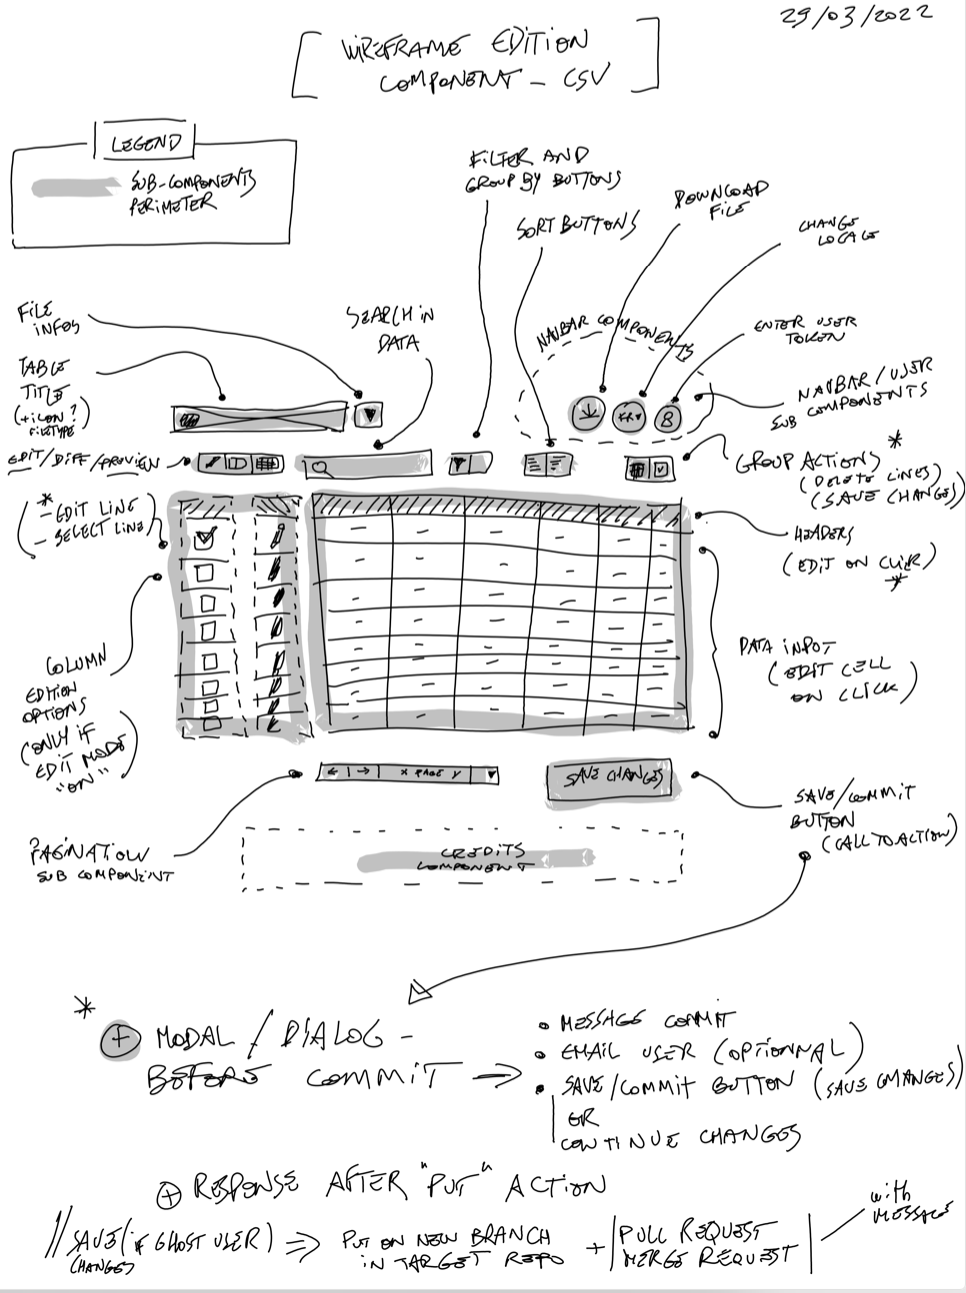 29/03/2022
WIREFRAME EDITION
COMPONENT - CSV
LEGEND
SUB-COMPONENTS
PERIMETER
FILTER AND
GROUP BY BUTTONS
SORT BUTTONS
DOWNLOAD
FILE
CHANGE
LOCALE
FILE
INFOS
SEARCH IN
DATA
NAVBAR COMPONENTS
ENTER USER
TOKEN
TABLE
TITLE
(+ ICON?
FILETYPE)
NAVBAR/USER
SUB COMPONENTS
EDIT/DIFF/PREVIEW
GROUP ACTIONS *
(DELETE LINES)
(SAVE CHANGES)
*
- EDIT LINE
- SELECT LINE
HEADERS
(EDIT ON CLICK)
*
COLUMN
EDITION
OPTIONS
(ONLY IF
EDIT MODE
"ON")
DATA INPUT
(EDIT CELL
ON CLICK)
← | → | X PAGE Y
SAVE CHANGES
SAVE/COMMIT
BUTTON
(CALL TO ACTION)
PAGINATION
SUB COMPONENT
CREDITS
COMPONENT
*
+ MODAL / DIALOG -
BEFORE COMMIT →
• MESSAGE COMMIT
• EMAIL USER (OPTIONNAL)
• SAVE/COMMIT BUTTON (SAVE CHANGES)
OR
CONTINUE CHANGES
+ RESPONSE AFTER "PUT" ACTION
with
MESSAGE
// SAVE (if GHOST USER) ⇒ PUT ON NEW BRANCH + | PULL REQUEST
CHANGES IN TARGET REPO MERGE REQUEST |